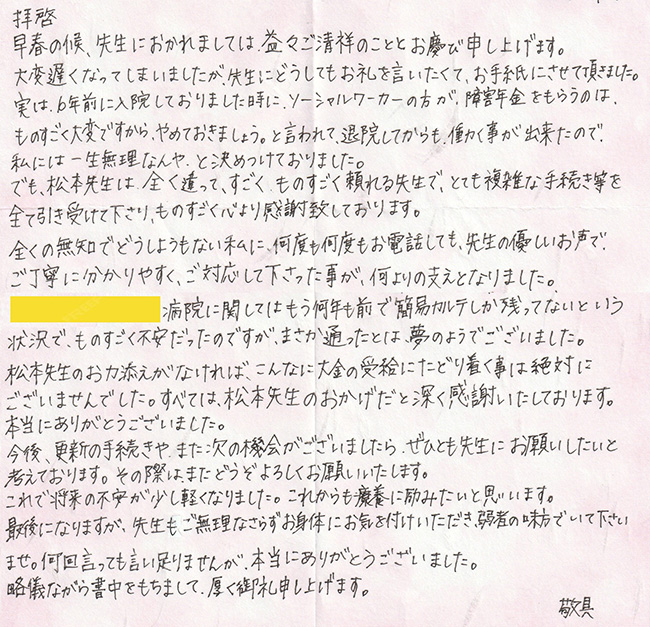 拝啓
早春の候、先生におかれましては、益々ご清祥のこととお慶び申し上げます。
大変遅くなってしまいましたが、先生にどうしてもお礼を言いたくて、お手紙にさせて頂きました。
実は、6年前に入院しておりました時に、ソーシャルワーカーの方が、障害年金をもらうのは、
ものすごく大変ですから、やめておきましょう。と言われて、退院してからも、働く事が出来たので、
私には一生無理なんや、と決めつけておりました。
でも、松本先生は、全く違って、すごく、ものすごく頼れる先生で、とても複雑な手続き等を
全て引き受けて下さり、ものすごく心より感謝致しております。
全くの無知でどうしようもない私に、何度も何度もお電話しても、先生の優しいお声で、
ご丁寧に分かりやすく、ご対応して下さった事が、何よりの支えとなりました。
病院に関してはもう何年も前で簡易カルテしか残ってないという
状況で、ものすごく不安だったのですが、まさか通ったとは、夢のようでございました。
松本先生のお力添えがなければ、こんなに大金の受給にたどり着く事は絶対に
ございませんでした。すべては、松本先生のおかげだと深く感謝いたしております。
本当にありがとうございました。
今後、更新の手続きや、また次の機会がございましたら、ぜひとも先生にお願いしたいと
考えております。その際はまたどうぞよろしくお願いいたします。
これで将来の不安が少し軽くなりました。これからも療養に励みたいと思います。
最後になりますが、先生もご無理なさらずお身体にお気を付けいただき、弱者の味方でいて下さい
ませ。何回言っても言い足りませんが、本当にありがとうございました。
略儀ながら書中をもちまして、厚く御礼申し上げます。
敬具